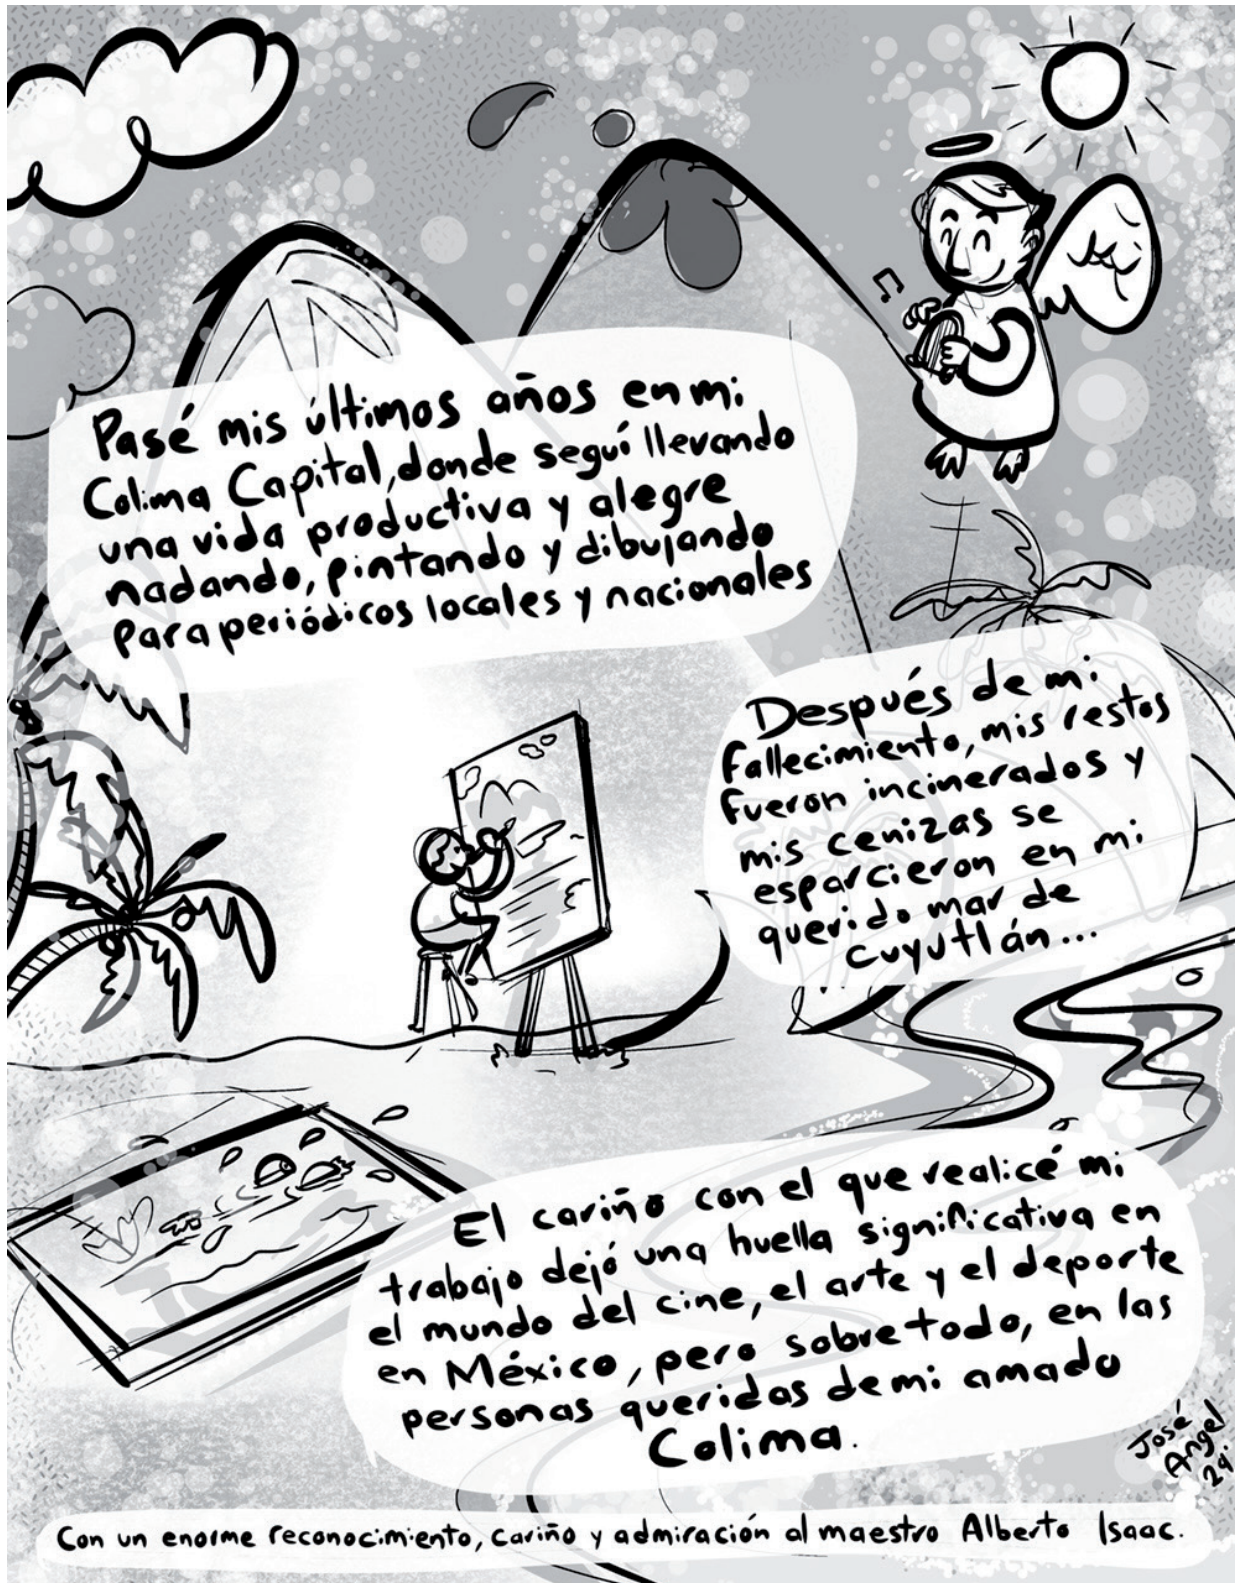 Pasé mis últimos años en mi
Colima Capital, donde seguí llevando
una vida productiva y alegre
nadando, pintando y dibujando
para periódicos locales y nacionales
Después de mi
fallecimiento, mis restos
fueron incinerados y
mis cenizas se
esparcieron en mi
querido mar de
Cuyutlán...
El cariño con el que realicé mi
trabajo dejó una huella significativa en
el mundo del cine, el arte y el deporte
en México, pero sobre todo, en las
personas queridas de mi amado
Colima.
José
Angel
24.
Con un enorme reconocimiento, cariño y admiración al maestro Alberto Isaac.